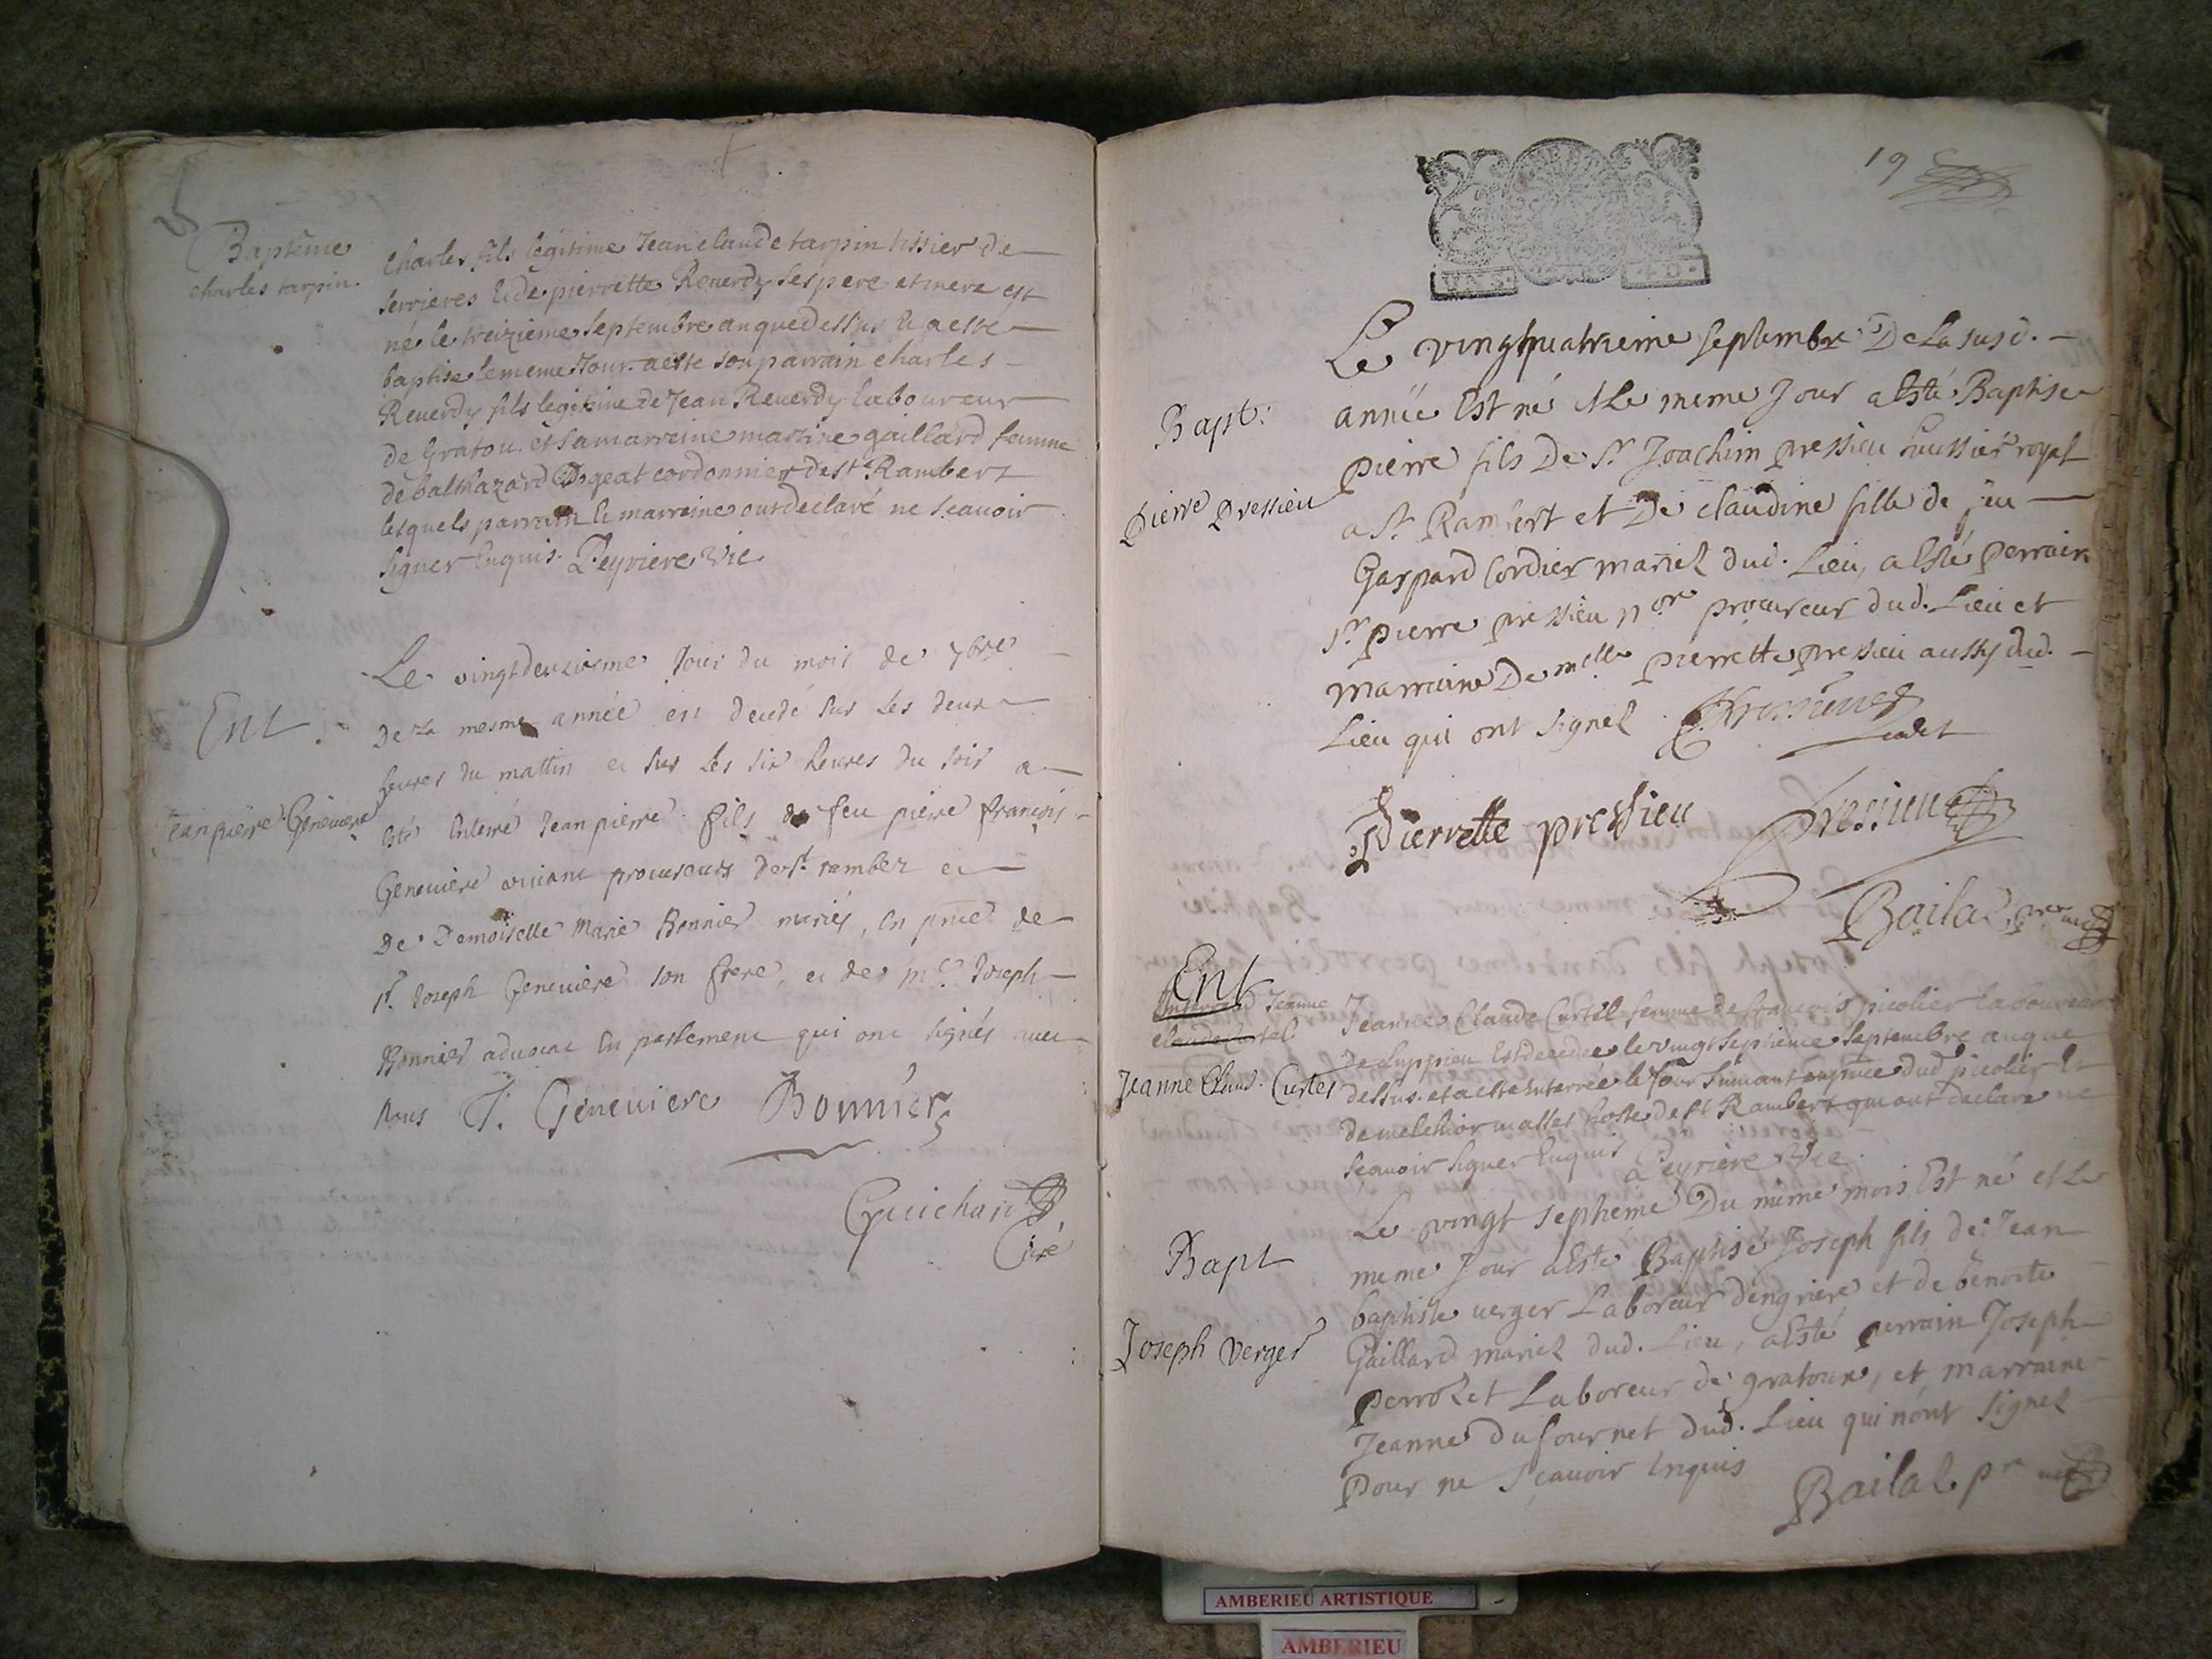 Baptême
charles tarpin.
Charles fils légitime Jean claude tarpin tissier de
serrieres & de pierrette Reuerdy ses pere et mere est
né le treizieme septembre an que dessus & a esté
baptise le meme Jour. a este son parrain charles
Reuerdy fils legitime de Jean Reuerdy laboureur
de Gratou. et sa marreine martine gaillard femme
de balthazard Dogeat cordonnier de st Rambert
lesquels parrain & marreine ont declaré ne scauoir
signer Enquis. Peyriere Vic
Ent.
Jean pierre Geneuiere
Le vingtdeuxieme Jour du mois de 7bre
De La mesme année est decedé sur Les deux
heures du mattin et sur Les six heures du soir a
esté Enterré Jean pierre fils de feu piere françois
Geneuiere viuant procureurs de st. rambert et
De Demoiselle Marie Bonnier mariés, En pnce de
sr. Joseph Geneuiere son frere, et de me. Joseph
Bonnier aduocat En parlement qui ont signés auec
Nous J. Geneuiere Bonnier
Guichard
Curé
19
Bapt:
pierre pressieu
Le vingtquatrieme septembre De La susd.
année Est né & Le meme Jour a Esté Baptise
pierre fils De Sr Joachim pressieu huissier royal
a St. Rambert et De claudine fille de feu
Gaspard Cordier mariez dud. Lieu, a Esté perrain
Sr. pierre pressieu nore procureur dud. Lieu et
marraine De mlle pierrette pressieu aussy dud.
Lieu qui ont signez
Cadet
Pierrette pressieu Pressieu
Bailat
Ent
Jeanne
claude Curtel
Jeanne Claud. Curtel
Jeanne Claude Curtil femme de francois picolier laboureur
de Luppieu Est decedee le vingt septieme septembre an que
dessus. et a esté Enterrée le Jour suiuant en pnce dud picolier &
de melchior mallet hoste de st Rambert qui ont declare ne
scauoir signer Enquis Peyriere Vic.
Bapt
Joseph verger
Le vingt septieme Du meme mois Est né et Le
meme Jour a Esté Baptisé Joseph fils de Jean
baptiste uerger Laboreur dengriere et de benoite
Gaillard mariez dud. Lieu, a Esté perrain Joseph
perrozet Laboreur de gratoux, et marraine
Jeanne dufournet dud. Lieu qui n'ont signez
pour ne sçauoir Enquis Bailat
AMBERIEU ARTISTIQUE
AMBERIEU